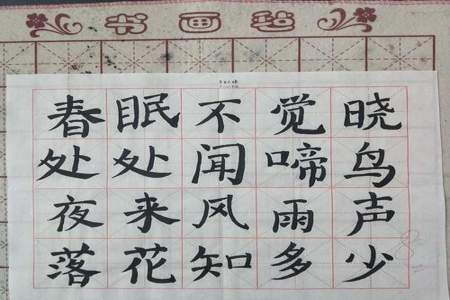 书画毡
春眠不觉晓
处处闻啼鸟
夜来风雨声
落花知多少